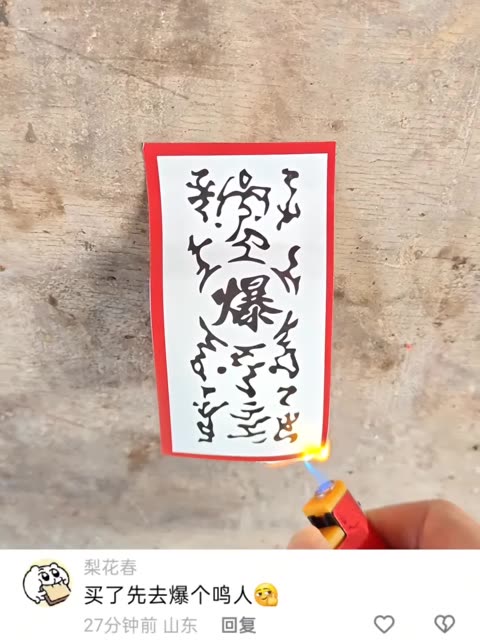 爆
梨花春
买了先去爆个鸣人
27分钟前 山东 回复